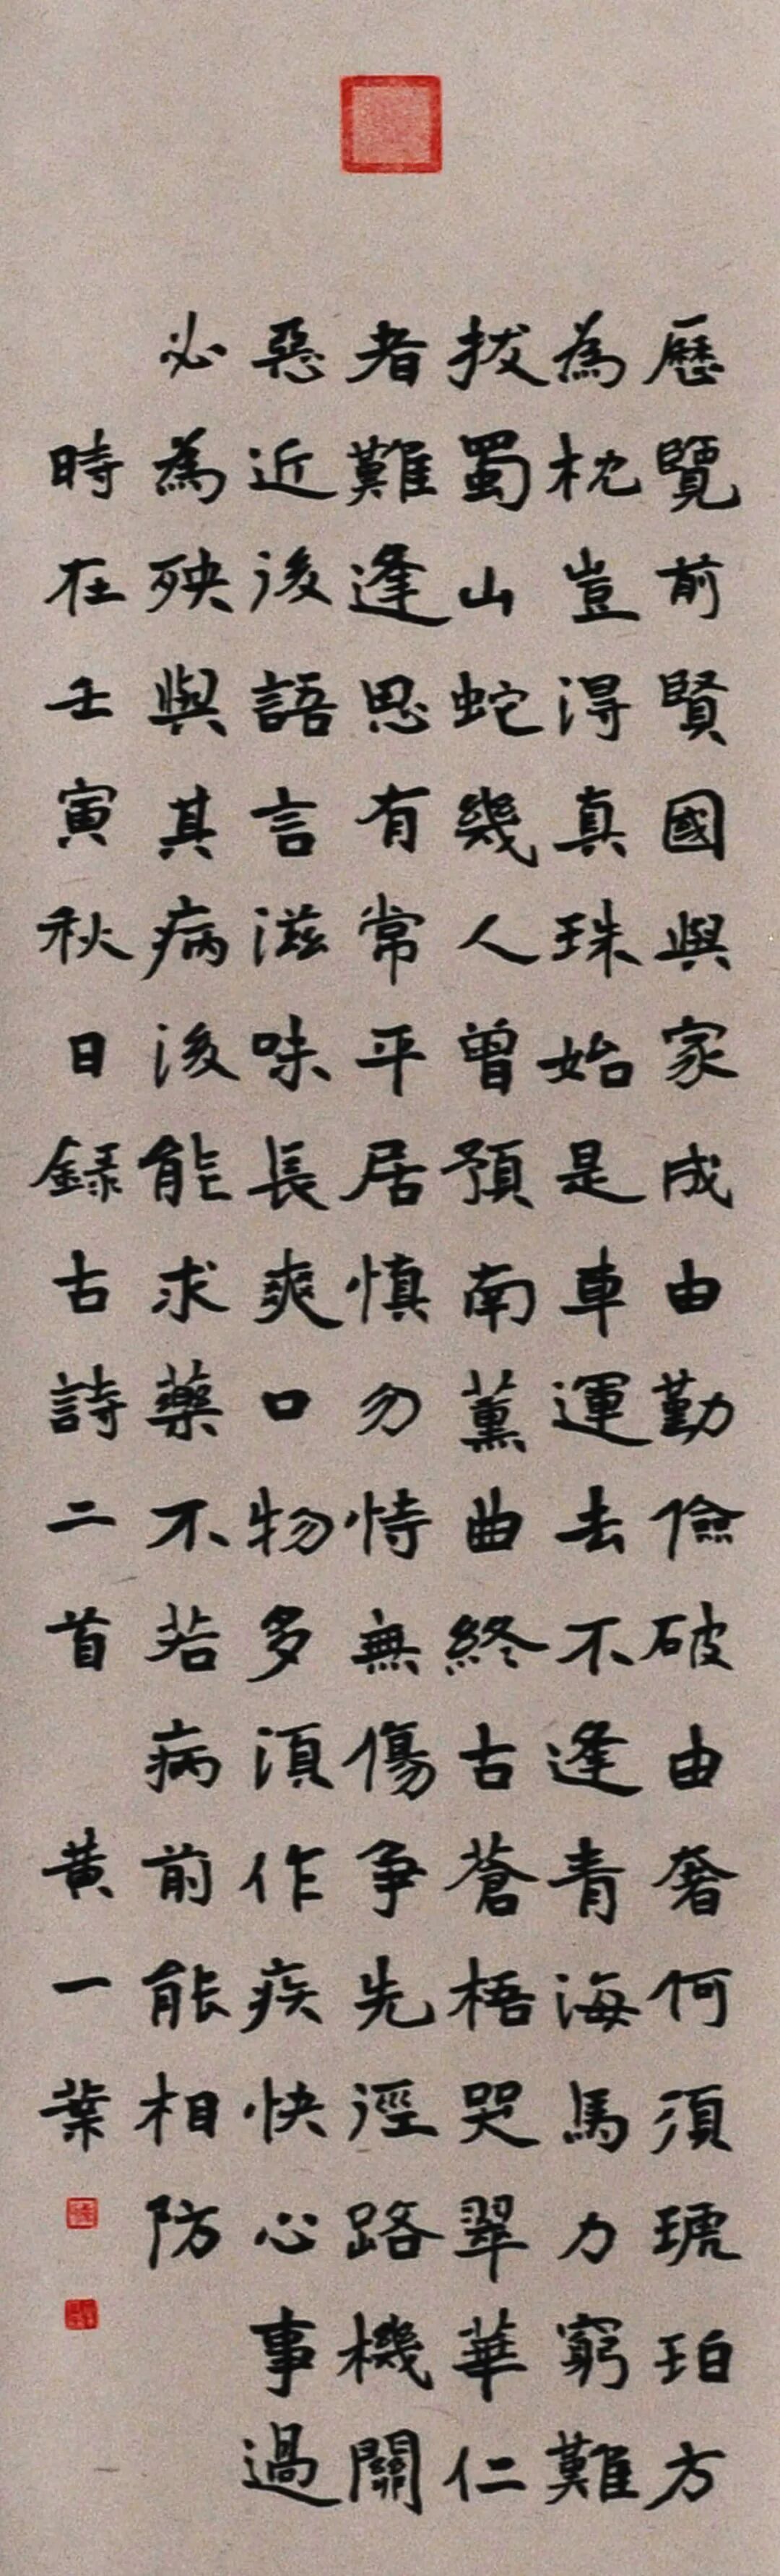 歷覽前賢國與家成由勤儉破由奢何須琥珀方
為枕豈得真珠始是車運去不逢青海馬力窮難
拔蜀山蛇幾人曾預南薰曲終古蒼梧哭翠華仁
者難逢思有常平居慎勿恃無傷爭先徑路機關
惡近後語言滋味長爽口物多須作疾快心事過
必為殃與其病後能求藥不若病前能相防
時在壬寅秋日錄古詩二首 黃一葉